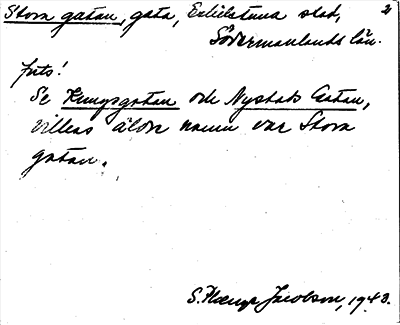 Stora gatan, gata, Eskilstuna stad, 2
Södermanlands län.
foto!
Se Kungsgatan och Nystads Gatan,
vilkas äldre namn var Stora
gatan.
S. Jacobson, 1943.